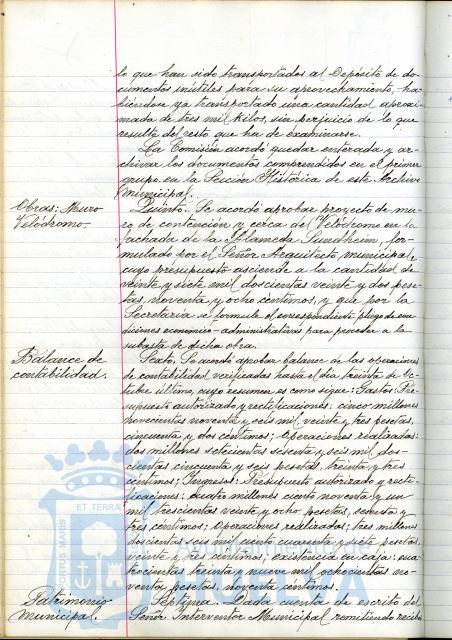 lo que han sido transportados al Depósito de do-
cumentos inútiles para su aprovechamiento, ha-
biéndose ya transportado una cantidad aproxi-
mada de tres mil kilos, sin perjuicio de lo que
resulte del resto que ha de examinarse.
La Comisión acordó quedar enterada y ar-
chivar los documentos comprendidos en el primer
grupo en la Sección Histórica de este Archivo
Municipal.
Obras: Muro
Velódromo.
Quinto. Se acordó aprobar proyecto de mu-
ro de contención y cerca del Velódromo en la
fachada de la Alameda Sundheim, for-
mulado por el Señor Arquitecto municipal,
cuyo presupuesto asciende a la cantidad de
veinte y siete mil doscientas veinte y dos pese-
tas, noventa y ocho céntimos, y que por la
Secretaría se formule el correspondiente pliego de con-
diciones económico-administrativas para proceder a la
subasta de dicha obra.
Balance de
contabilidad.
Sexto. Se acordó aprobar balance de las operaciones
de contabilidad verificadas hasta el día treinta de Oc-
tubre último, cuyo resumen es como sigue: Gastos: Pre-
supuesto autorizado y rectificaciones: cinco millones
novecientas noventa y seis mil veinte y tres pesetas,
cincuenta y dos céntimos; Operaciones realizadas:
dos millones setecientas sesenta y seis mil dos-
cientas cincuenta y seis pesetas, treinta y tres
céntimos; Ingresos: Presupuesto autorizado y recti-
ficaciones: cuatro millones ciento noventa y un
mil trescientas veinte y ocho pesetas, sesenta y
tres céntimos; Operaciones realizadas; tres millones
doscientas seis mil ciento cuarenta y siete pesetas
veinte y tres céntimos; existencia en caja: cua-
trocientas treinta y nueve mil ochocientas no-
venta pesetas, noventa céntimos.
Patrimonio
Municipal.
Septimo. Dada cuenta de escrito del
Señor Interventor Municipal remitiendo recibo
ET TERRA
PORTUS MARIS